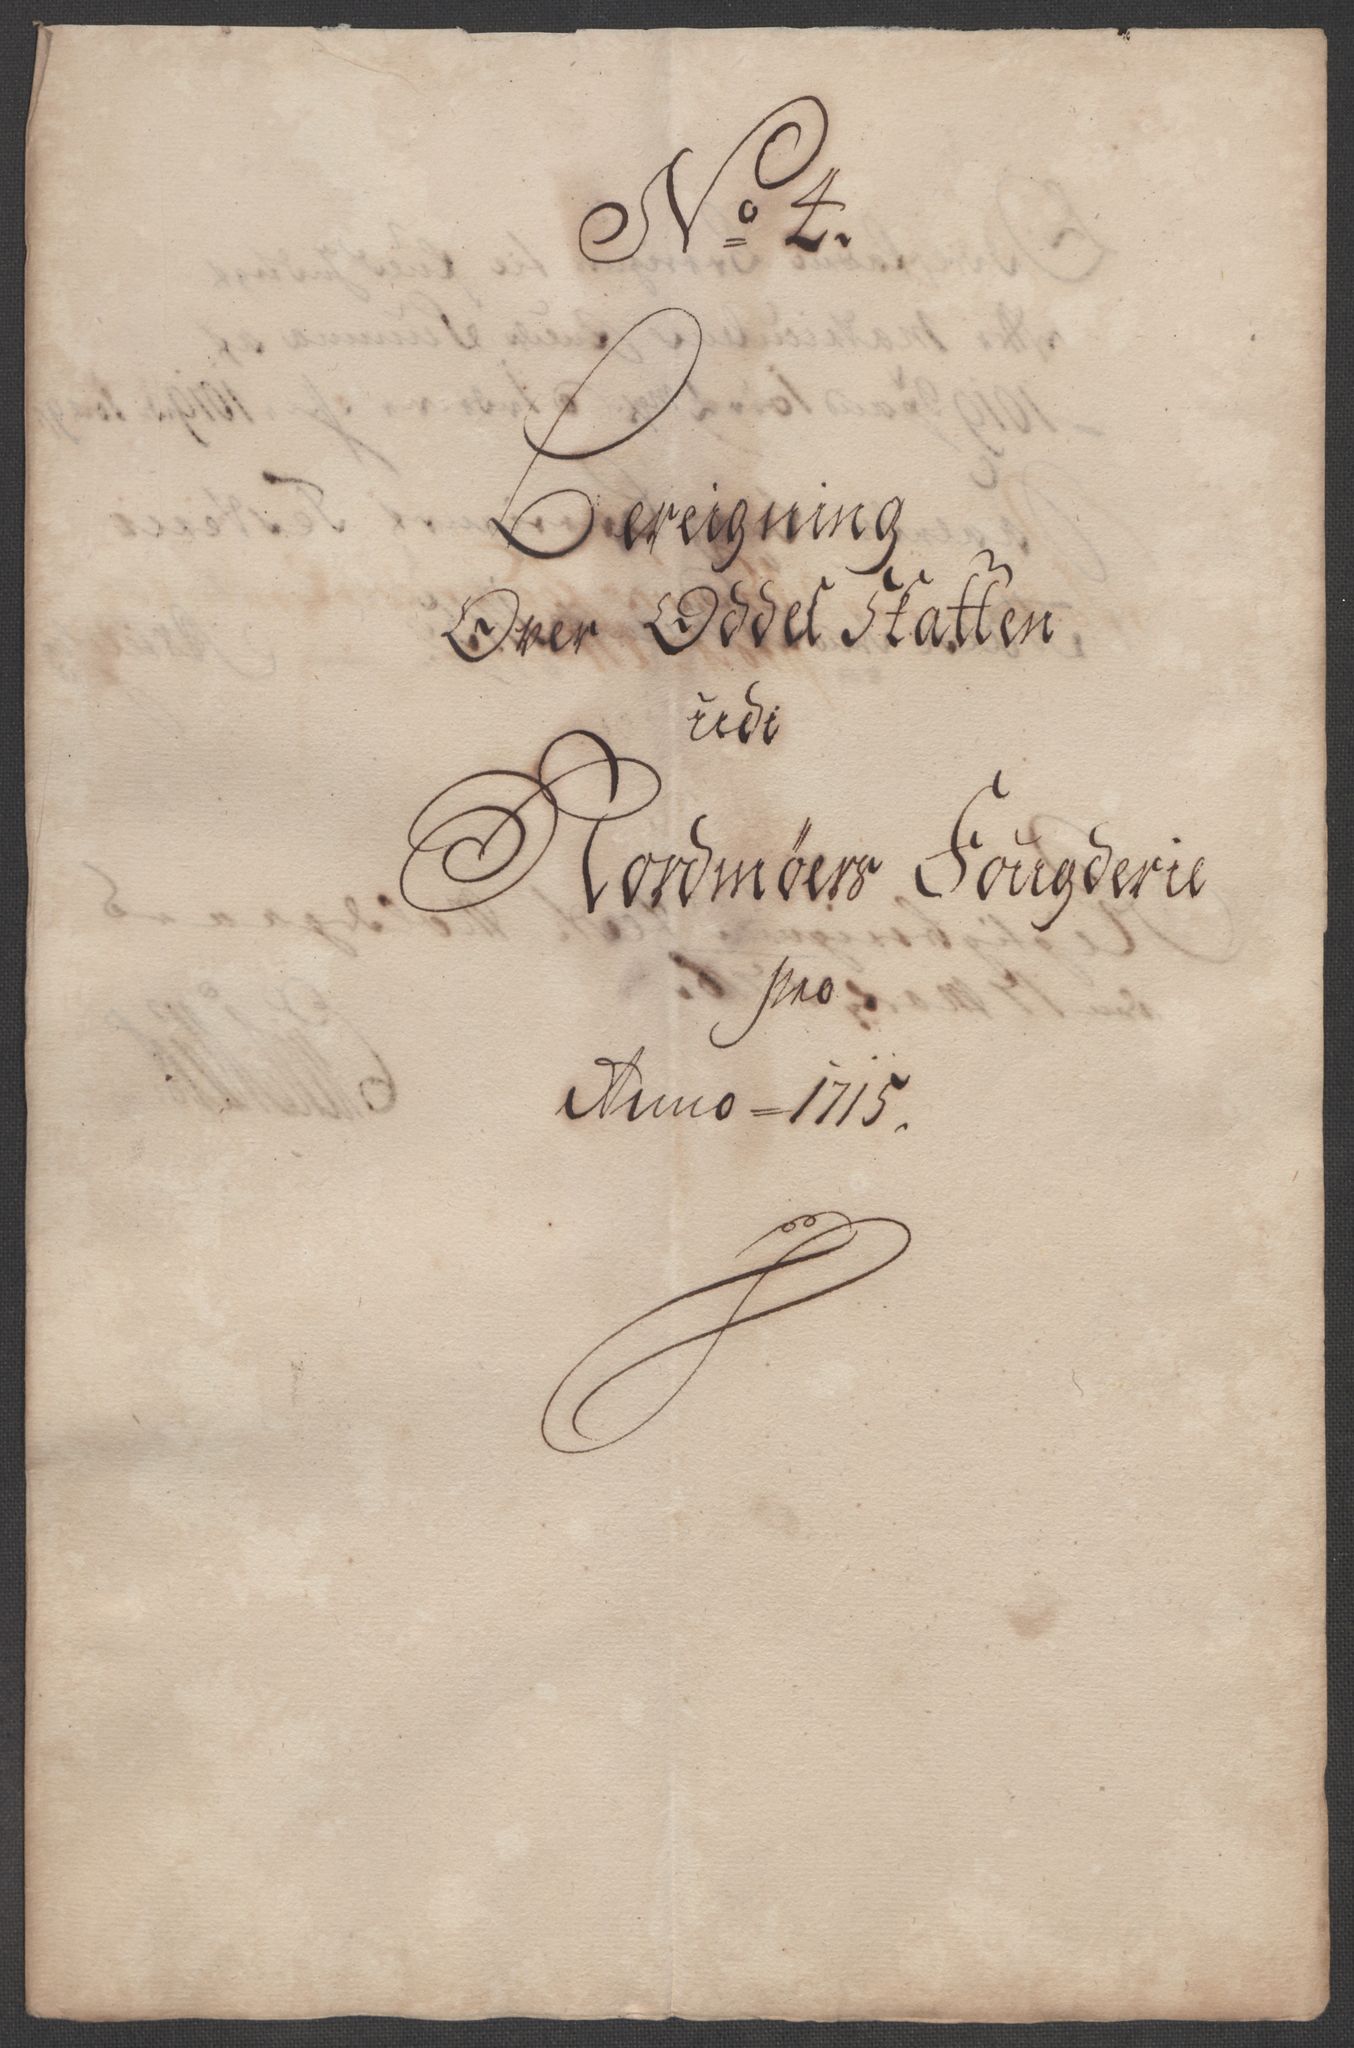 No 4.
Bereigning
Over Oddel Skatten
udi
Nordmøers Fougderie
pro
Anno = 1715.